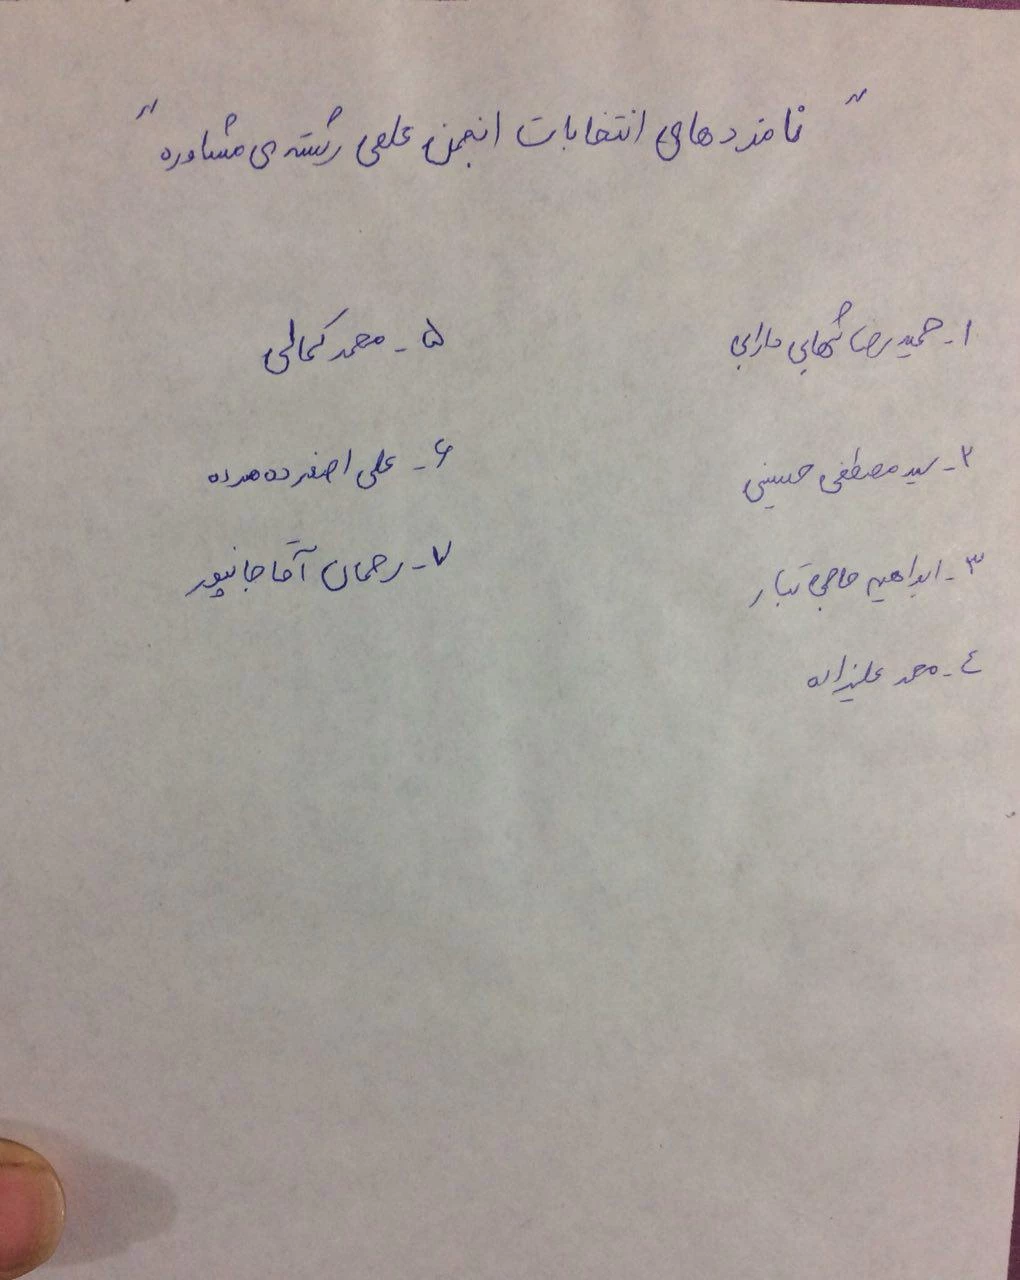 "نامزدهای انتخابات انجمن علمی رشته‌ی مشاوره"
۱- حمیدرضا شهابی دارابی
۲- سید مصطفی حسینی
۳- ابراهیم حاجی تبار
٤- محمد علیزاده
۵- محمد کمالی
۶- علی اصغر ده مرده
۷- رحمان آقاجانپور